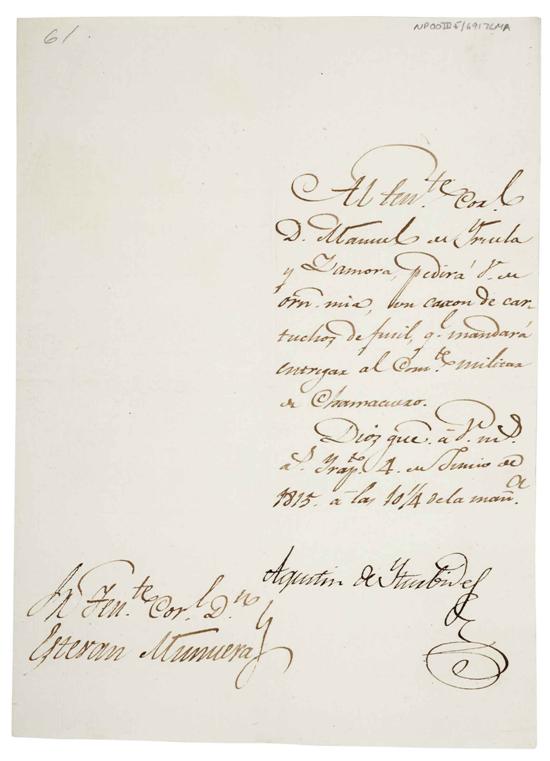 61
NP00IDE/6917GMA
Al Ten.te Cor.l
D. Manuel de Yruela
y Zamora, pedirá V. de
orn. mia, un caxon de car-
tuchos de fusil, q.e mandará
entregar al Com.te militar
de Chamacuero.
Dios gue. á V. m.s
a.s Yrap.to 4. de Junio de
1815. á las 10 1/4 de la mañ.a
Agustin de Yturbide
Sr. Ten.te Cor.l D.n
Estevan Munuera